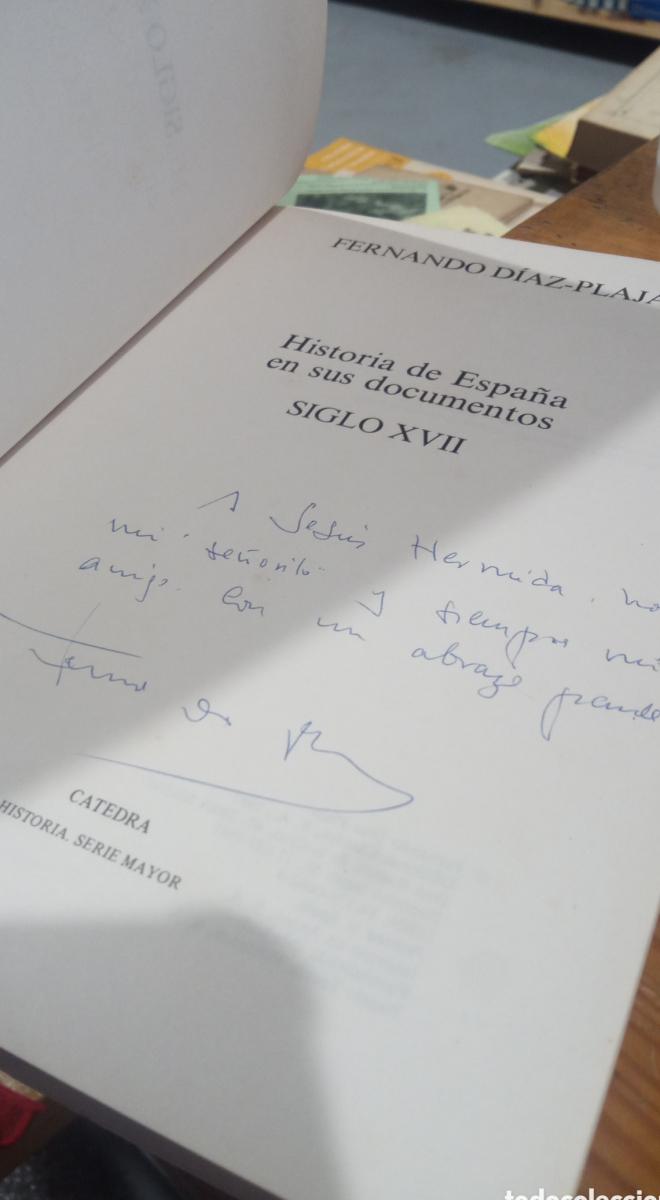 FERNANDO DÍAZ-PLAJA
Historia de España
en sus documentos
SIGLO XVII
A Jesús Hermida,
mi "señorito" y siempre mi
amigo. Con un abrazo grande
CATEDRA
HISTORIA. SERIE MAYOR
SIGLO
todocoleccio